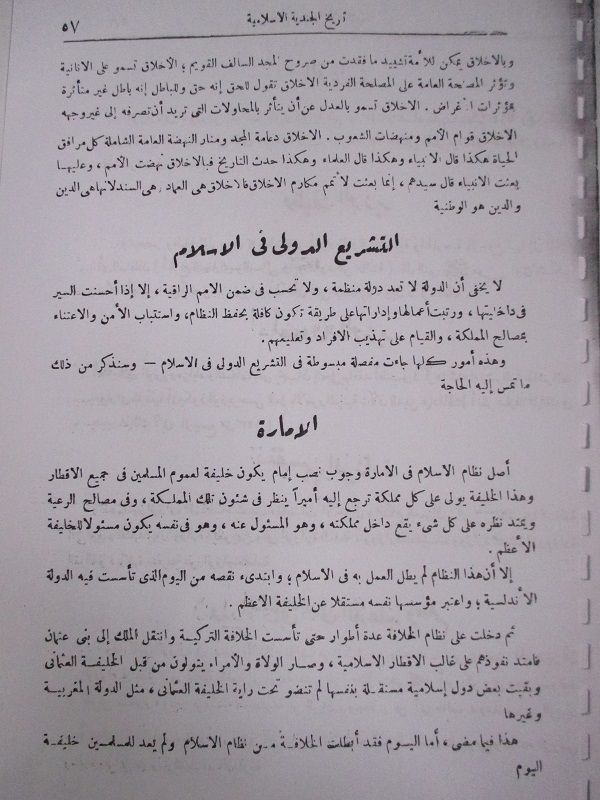 تاريخ الجندية الاسلامية
٥٧
وبالاخلاق يمكن للأمة تشييد ما فقدت من صروح المجد السالف القويم؛ الأخلاق تسمو على الانانية
وتؤثر المصلحة العامة على المصلحة الفردية الاخلاق تقول للحق إنه حق وللباطل إنه باطل غير متأثرة
بمؤثرات الأغراض . الاخلاق تسمو بالعدل عن أن يتأثر بالمحاولات التى تريد أن تصرفه إلى غير وجهه
الاخلاق قوام الأمم ومنهضات الشعوب . الاخلاق دعامة المجد ومنار النهضة العامة الشاملة كل مرافق
الحياة هكذا قال الانبياء وهكذا قال العلماء وهكذا حدث التاريخ فبالاخلاق نهضت الأمم ، وعليها
بعثت الانبياء قال سيدهم ، إنما بعثت لأتمم مكارم الاخلاق فالاخلاق هى العماد ، هى السند لانها هى الدين
والدين هو الوطنية
التشريع الدولى فى الاسلام
لا يخفى أن الدولة لا تعد دولة منظمة ، ولا تحسب فى ضمن الامم الراقية ، إلا إذا أحسنت السير
فى داخليتها ، ورتبت أعمالها وإداراتها على طريقة تكون كافلة بحفظ النظام، واستتباب الأمن والاعتناء
بمصالح المملكة ، والقيام على تهذيب الافراد وتعليمهم .
وهذه أمور كلها جاءت مفصلة مبسوطة فى التشريع الدولى فى الاسلام — وسنذكر من ذلك
ما تمس إليه الحاجة
الامارة
أصل نظام الاسلام فى الامارة وجوب نصب إمام يكون خليفة لعموم المسلمين فى جميع الاقطار
وهذا الخليفة يولى على كل مملكة ترجع إليه أميراً ينظر فى شئون تلك المملكة ، وفى مصالح الرعية
ويمتد نظره على كل شىء يقع داخل مملكته ، وهو المسئول عنه ، وهو فى نفسه يكون مسئولا للخليفة
الأعظم .
إلا أن هذا النظام لم يطل العمل به فى الاسلام ؛ وابتدىء نقصه من اليوم الذى تأسست فيه الدولة
الأندلسية ؛ واعتبر مؤسسها نفسه مستقلا عن الخليفة الاعظم .
ثم دخلت على نظام الخلافة عدة أطوار حتى تأسست الخلافة التركية وانتقل الملك إلى بنى عثمان
فامتد نفوذهم على غالب الاقطار الاسلامية ، وصار الولاة والأمراء يتولون من قبل الخليفة العثمانى
وبقيت بعض دول إسلامية مستقلة بنفسها لم تنضو تحت راية الخليفة العثمانى ، مثل الدولة المغربية
وغيرها
هذا فيما مضى ، أما اليوم فقد أبطلت الخلافة من نظام الاسلام ولم يعد للمسلمين خليفة
اليوم